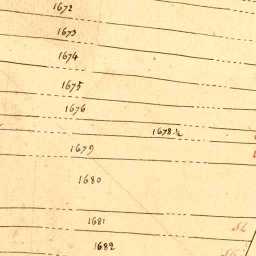 1672
1673
1674
1675
1676
1678 ½
1679
1680
1681
1682